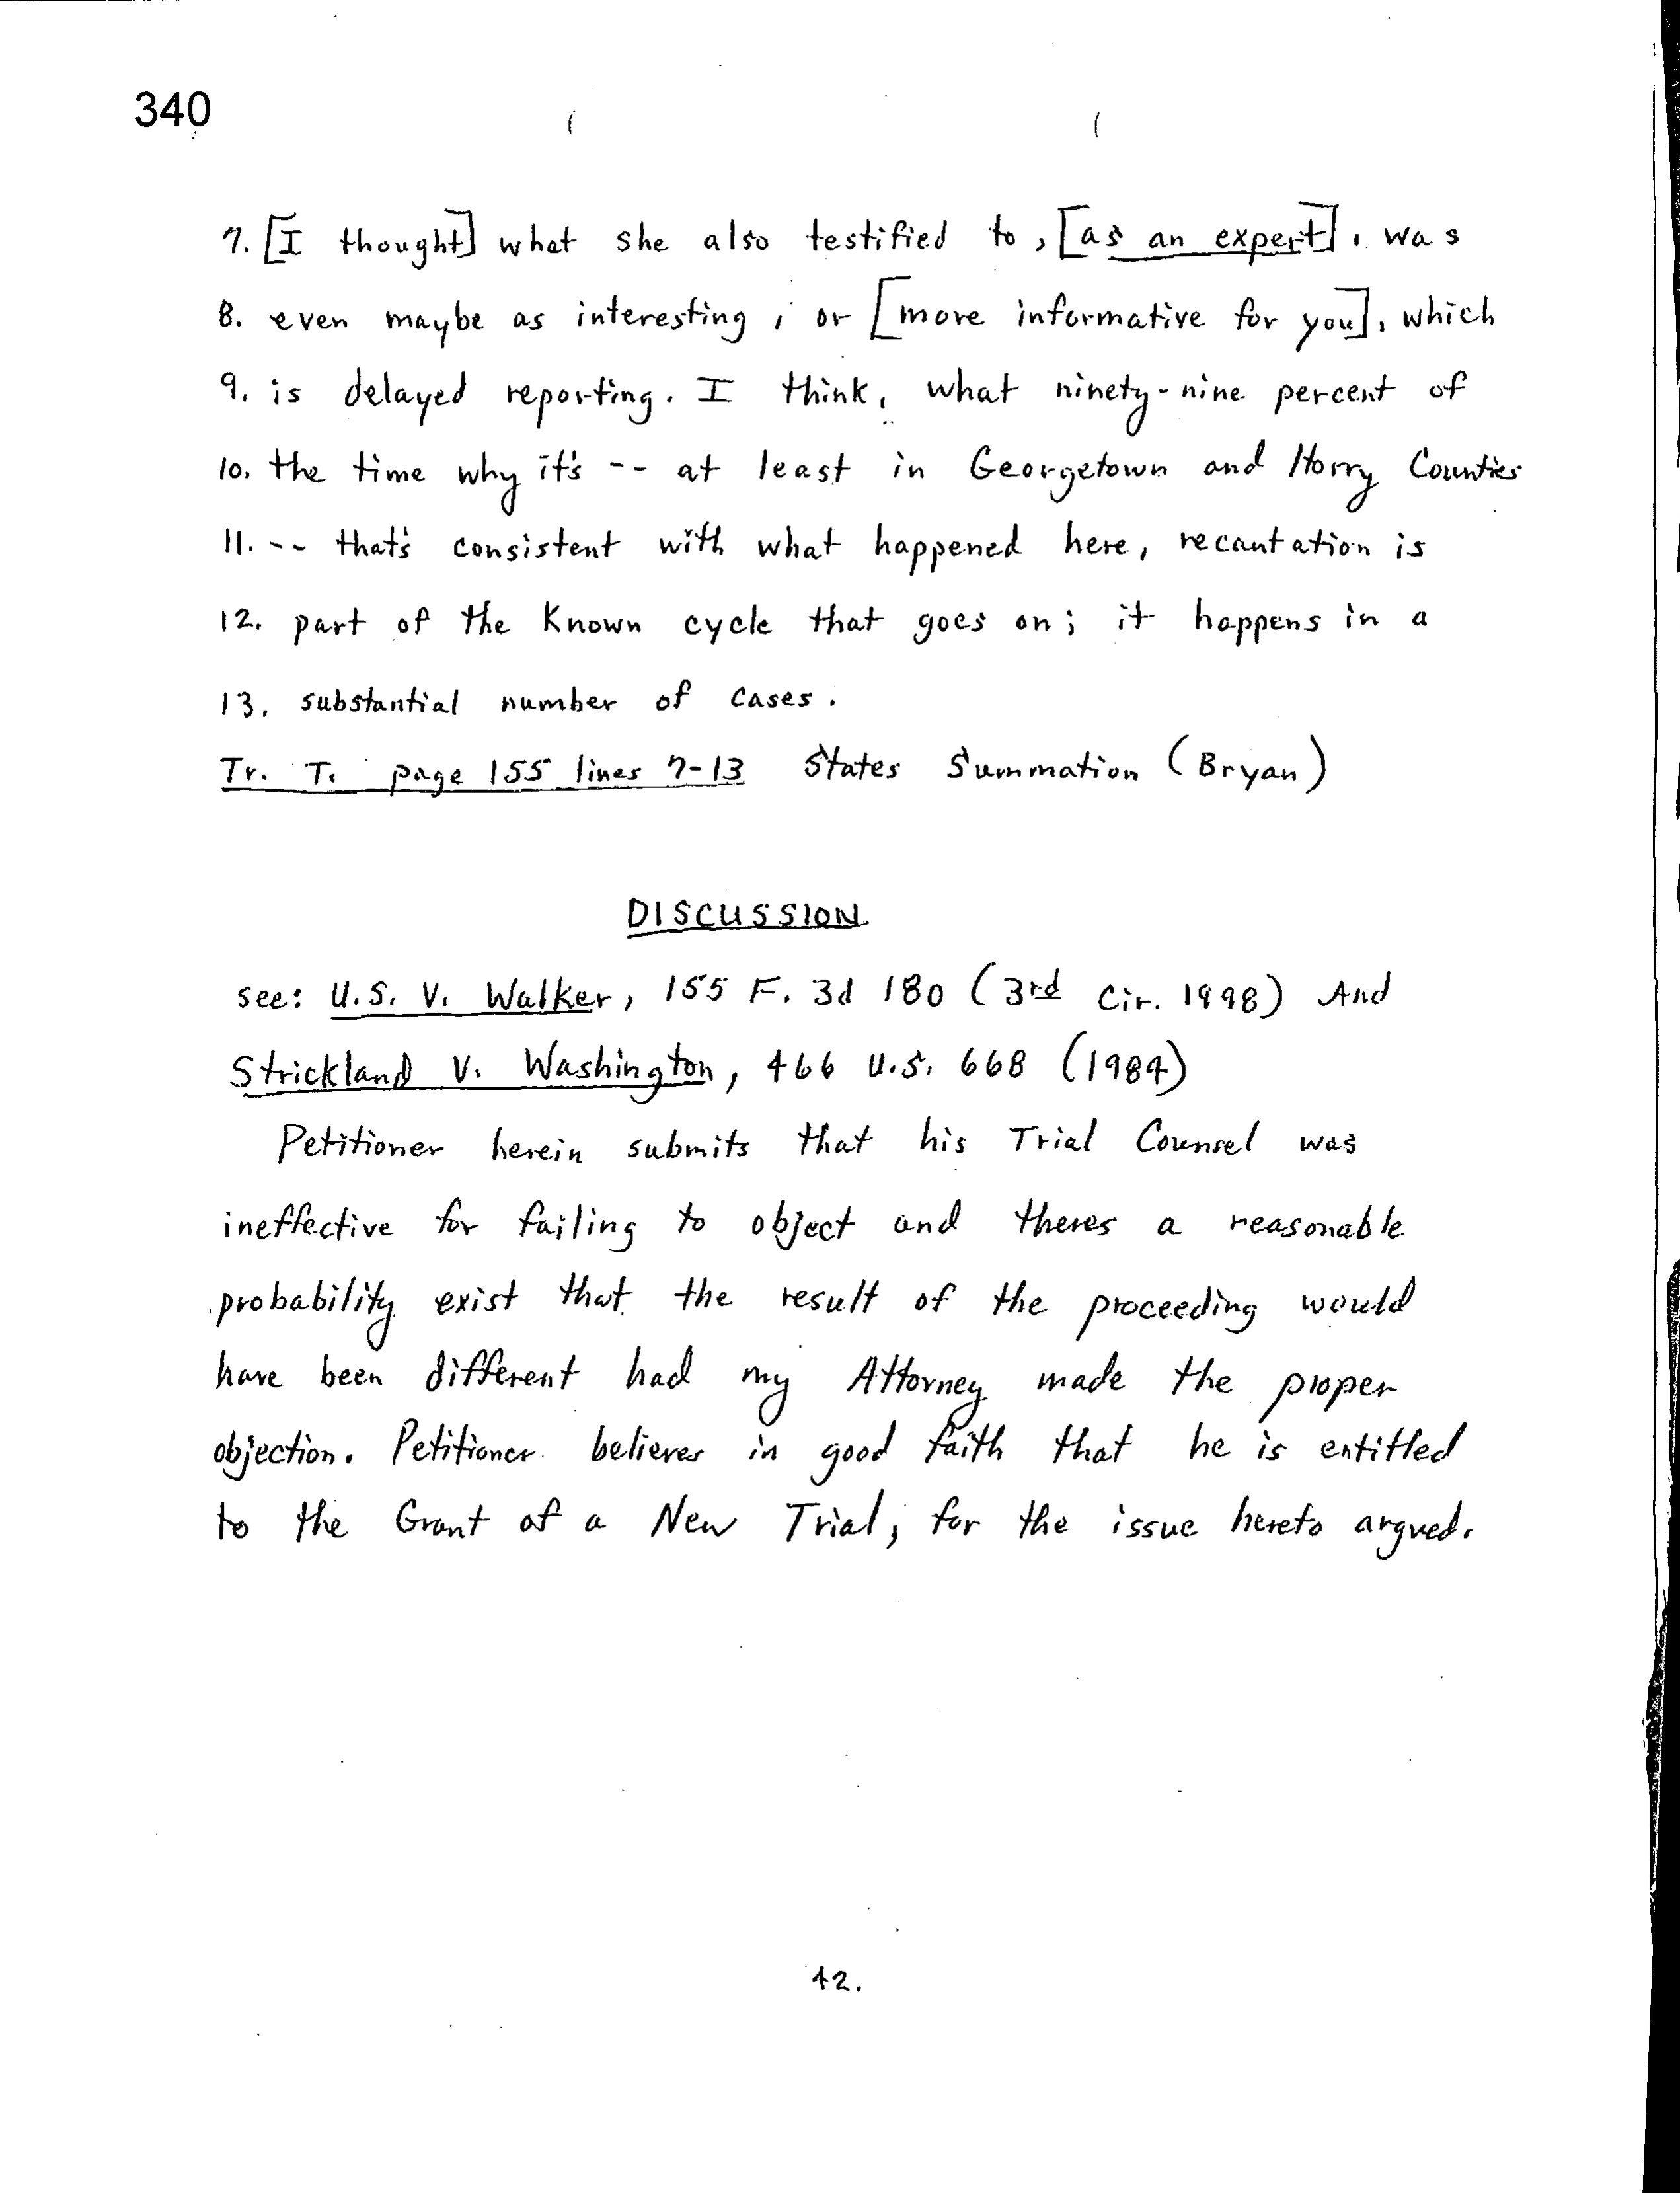 340
7. [I thought] what she also testified to, [as an expert], was
8. even maybe as interesting, or [more informative for you], which
9. is delayed reporting. I think, what ninety-nine percent of
10. the time why it's -- at least in Georgetown and Horry Counties
11. -- that's consistent with what happened here, recantation is
12. part of the known cycle that goes on; it happens in a
13. substantial number of cases.
Tr. T. page 155 lines 7-13 States Summation (Bryan)
DISCUSSION
see: U.S. V. Walker, 155 F. 3d 180 (3rd Cir. 1998) And
Strickland V. Washington, 466 U.S. 668 (1984)
Petitioner herein submits that his Trial Counsel was
ineffective for failing to object and theres a reasonable
probability exist that the result of the proceeding would
have been different had my Attorney made the proper
objection. Petitioner believes in good faith that he is entitled
to the Grant of a New Trial, for the issue hereto argued.
42.